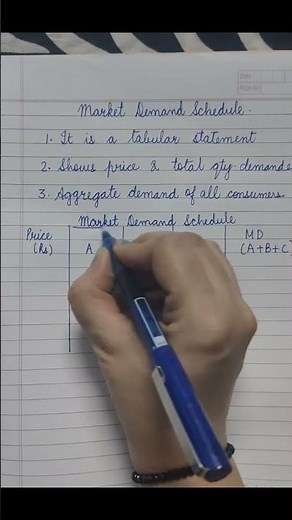 Market Demand Schedule.
1. It is a tabular statement
2. Shows price & total qty. demande
3. Aggregate demand of all consumers
Market Demand Schedule
Price (Rs) A MD (A+B+C)
Date